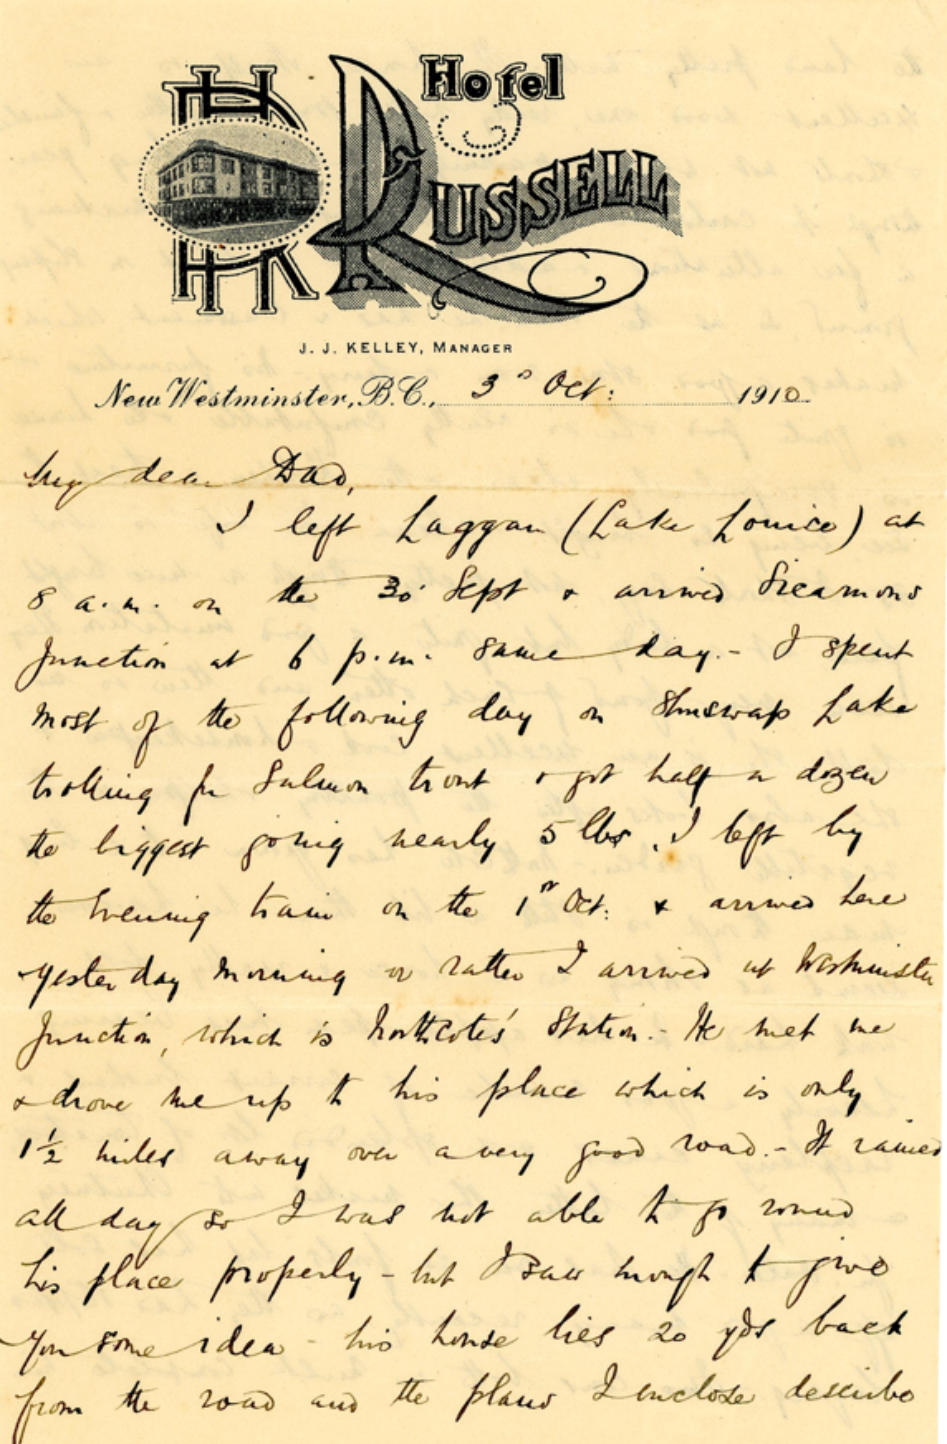 Hotel
Russell
HR
J. J. KELLEY, MANAGER
New Westminster, B.C., 3rd Oct: 1910
My dear Dad,
I left Laggan (Lake Louise) at
8 a.m. on the 30 Sept & arrived Sicamous
Junction at 6 p.m. same day. - I spent
most of the following day on Shuswap Lake
trolling for Salmon trout & got half a dozen
the biggest going nearly 5 lbs. I left by
the Evening train on the 1st Oct: & arrived here
yesterday morning or rather I arrived at Westminster
Junction, which is Northcote's Station. - He met me
& drove me up to his place which is only
1½ miles away over a very good road. - It rained
all day so I was not able to go round
his place properly - but I saw enough to give
you some idea - his house lies 20 yds back
from the road and the plans I enclose describe